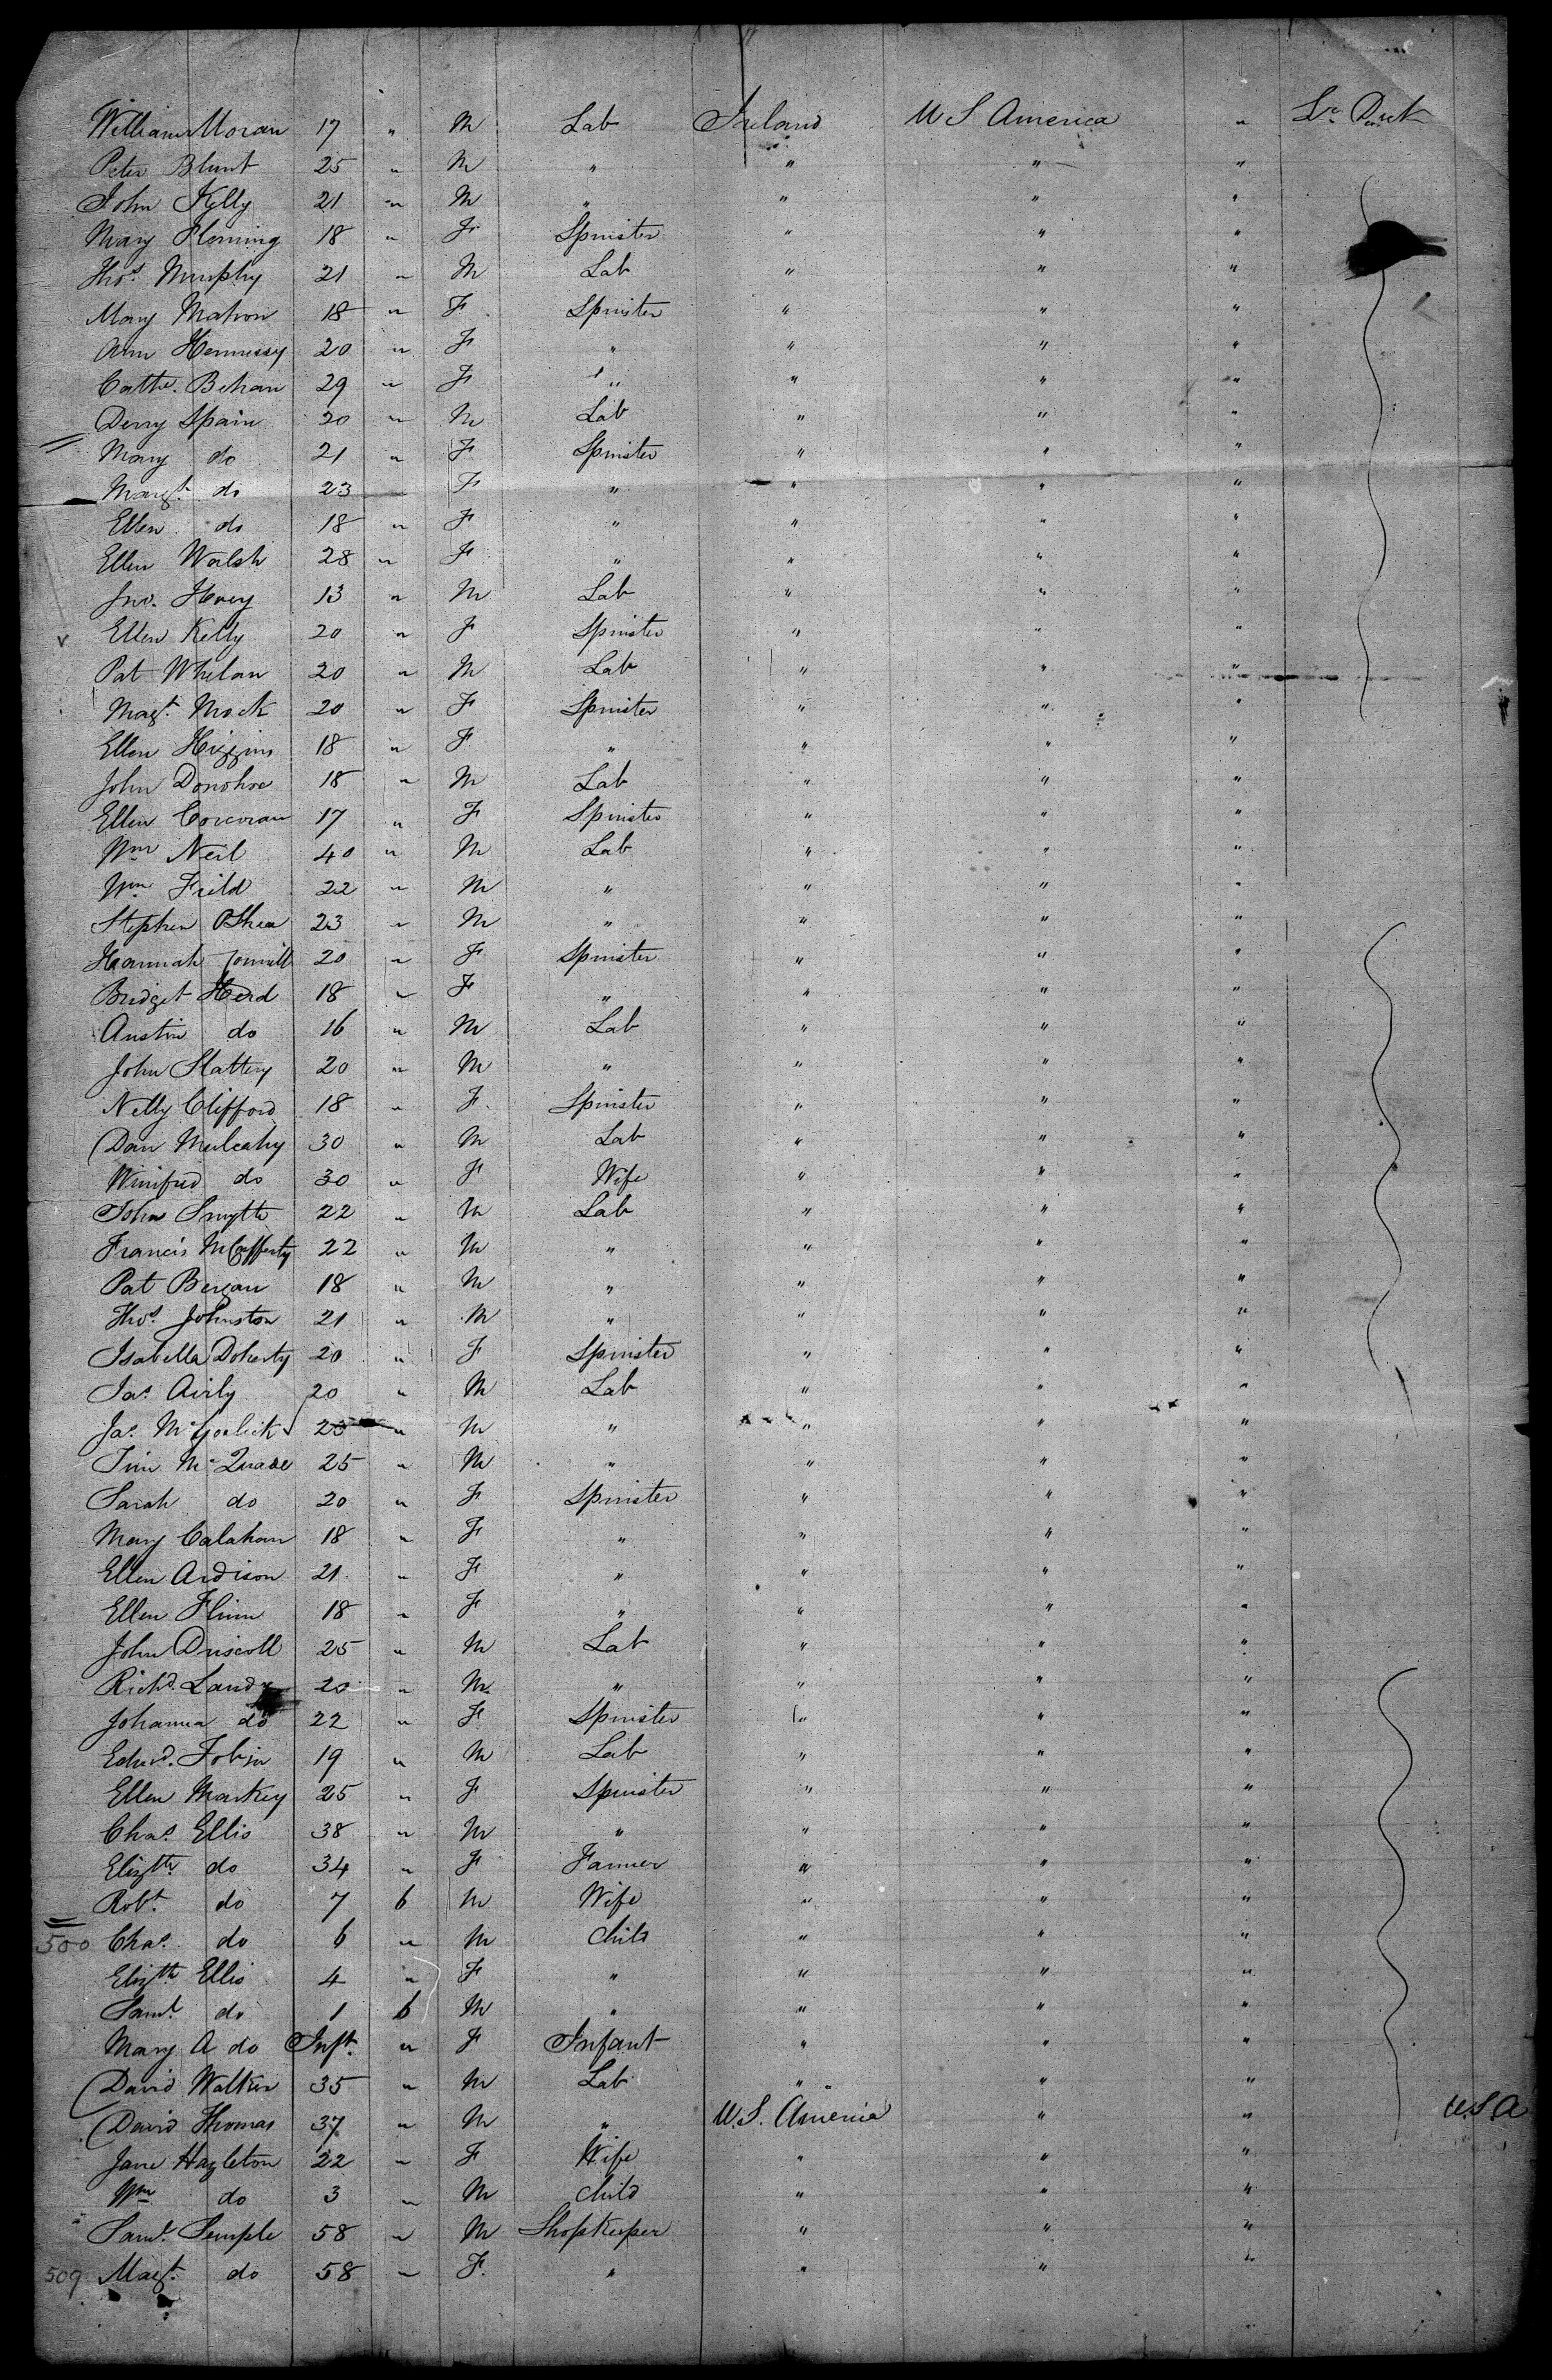 William Moran 17 " M Lab Ireland U S America "
Peter Blunt 25 " M " " " "
John Kelly 21 " M " " " "
Mary Fleming 18 " F Spinster " " "
Thos. Murphy 21 " M Lab " " "
Mary Mahon 18 " F Spinster " " "
Ann Hennessy 20 " F " " " "
Cathe. Behan 29 " F " " " "
Derry Spain 20 " M Lab " " "
Mary do 21 " F Spinster " " "
Margt. do 23 " F " " " "
Ellen do 18 " F " " " "
Ellen Walsh 28 " F " " " "
Jno. 13 " M Lab " " "
Ellen Kelly 20 " F Spinster " " "
Pat Whelan 20 " M Lab " " "
Magt. Mack 20 " F Spinster " " "
Ellen Higgins 18 " F " " " "
John Donohoe 18 " M Lab " " "
Ellen Corcoran 17 " F Spinster " " "
Wm Neil 40 " M Lab " " "
Wm Feild 22 " M " " " "
Stephen OShea 23 " M " " " "
Hannah 20 " F Spinster " " "
Bridget Herd 18 " F " " " "
Austin do 16 " M Lab " " "
John Slattery 20 " M " " " "
Nelly Clifford 18 " F Spinster " " "
Dan Mulcahy 30 " M Lab " " "
Winifred do 30 " F Wife " " "
John Smyth 22 " M Lab " " "
Francis McCafferty 22 " M " " " "
Pat Bergan 18 " M " " " "
Thos. Johnston 21 " M " " " "
Isabella Doherty 20 " F Spinster " " "
Jas. Airly 20 " M Lab " " "
Jas. McGoulick 20 " M " " " "
Tim McQuade 25 " M " " " "
Sarah do 20 " F Spinster " " "
Mary Calahan 18 " F " " " "
Ellen Ardison 21 " F " " " "
Ellen Flinn 18 " F " " " "
John Driscoll 25 " M Lab " " "
Richd. Landy 20 " M " " " "
Johanna do 22 " F Spinster " " "
Edwd. Tobin 19 " M Lab " " "
Ellen Markey 25 " F Spinster " " "
Chas. Ellis 38 " M " " " "
Elizth do 34 " F Farmer " " "
Robt. do 7 6 M Wife " " "
500 Chas. do 6 " M Child " " "
Elizth Ellis 4 " F " " " "
Saml. do 1 6 M " " " "
Mary A do Inft. " F Infant " " "
David Walker 35 " M Lab " " "
David Thomas 37 " M " U.S. America " " U.S.A
Jane Hazleton 22 " F Wife " " "
Wm do 3 " M Child " " "
Saml. Semple 58 " M Shopkeeper " " "
509 Magt. do 58 " F. " " " "